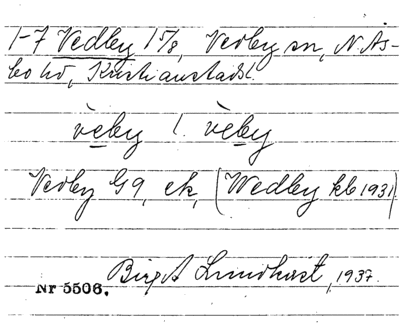 1-7 Vedby 15/8, Vedby sn, N. Ås-
bo hd, Kristianstads l.
vèby l. vèby
Vedby G9, ek, (Wedby kb 1931)
Birgit Lundkvist, 1937.
Nr 5506.